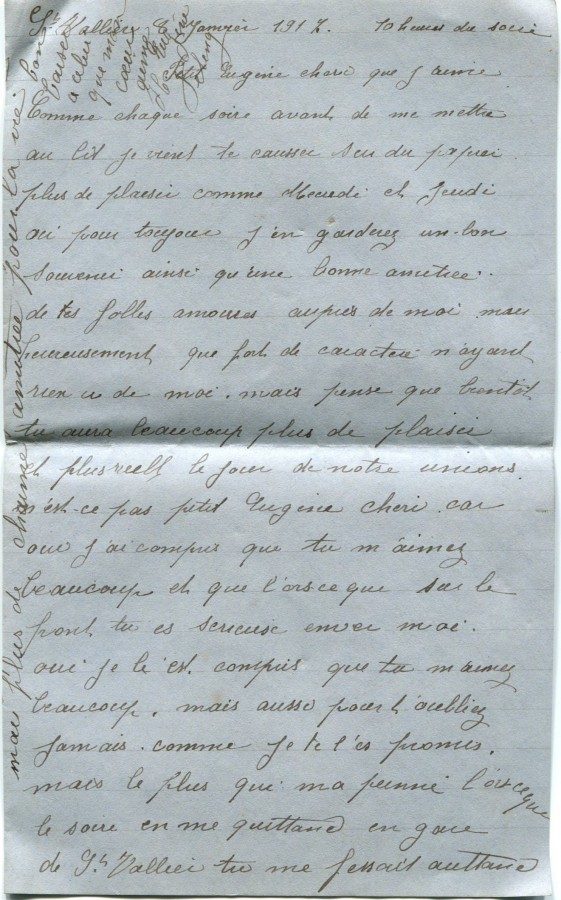 St Vallier Janvier 1917. 10 heures du soire
Petit Eugène cheri que j'aime
Comme chaque soire avant de me mettre
au lit je vient te causser sur du papier
plus de plaesir comme Mecredi et Jeudi
oú pour toujour j'en garderez un bon
souvenir ainsi qu'une bonne amitiee.
de tes folles amoures auprés de moi mais
heureusement que fort de caractére n'ayant
rien u de moi. mais pense que bientôt
tu aura beaucoup plus de plaisir
et plus réell le jour de notre unions.
n'est-ce pas petit Eugène cheri. car
oui j'ai compris que tu m'aimez
beaucoup et que l'orsceque sur le
front tu es serieuse enver moi.
oui je l'est compris que tu m'aimez
beaucoup. mais ausse pour t'oubliez
jamais comme je te l'es promis.
mais le plus que ma penné l'orsceque
le soire en me quittand en gare
de St Vallier tu me fessait auttand
mais plus de chaume amitiee pour la vie
bons baiser a celui que mon
cœur aime
Eugène